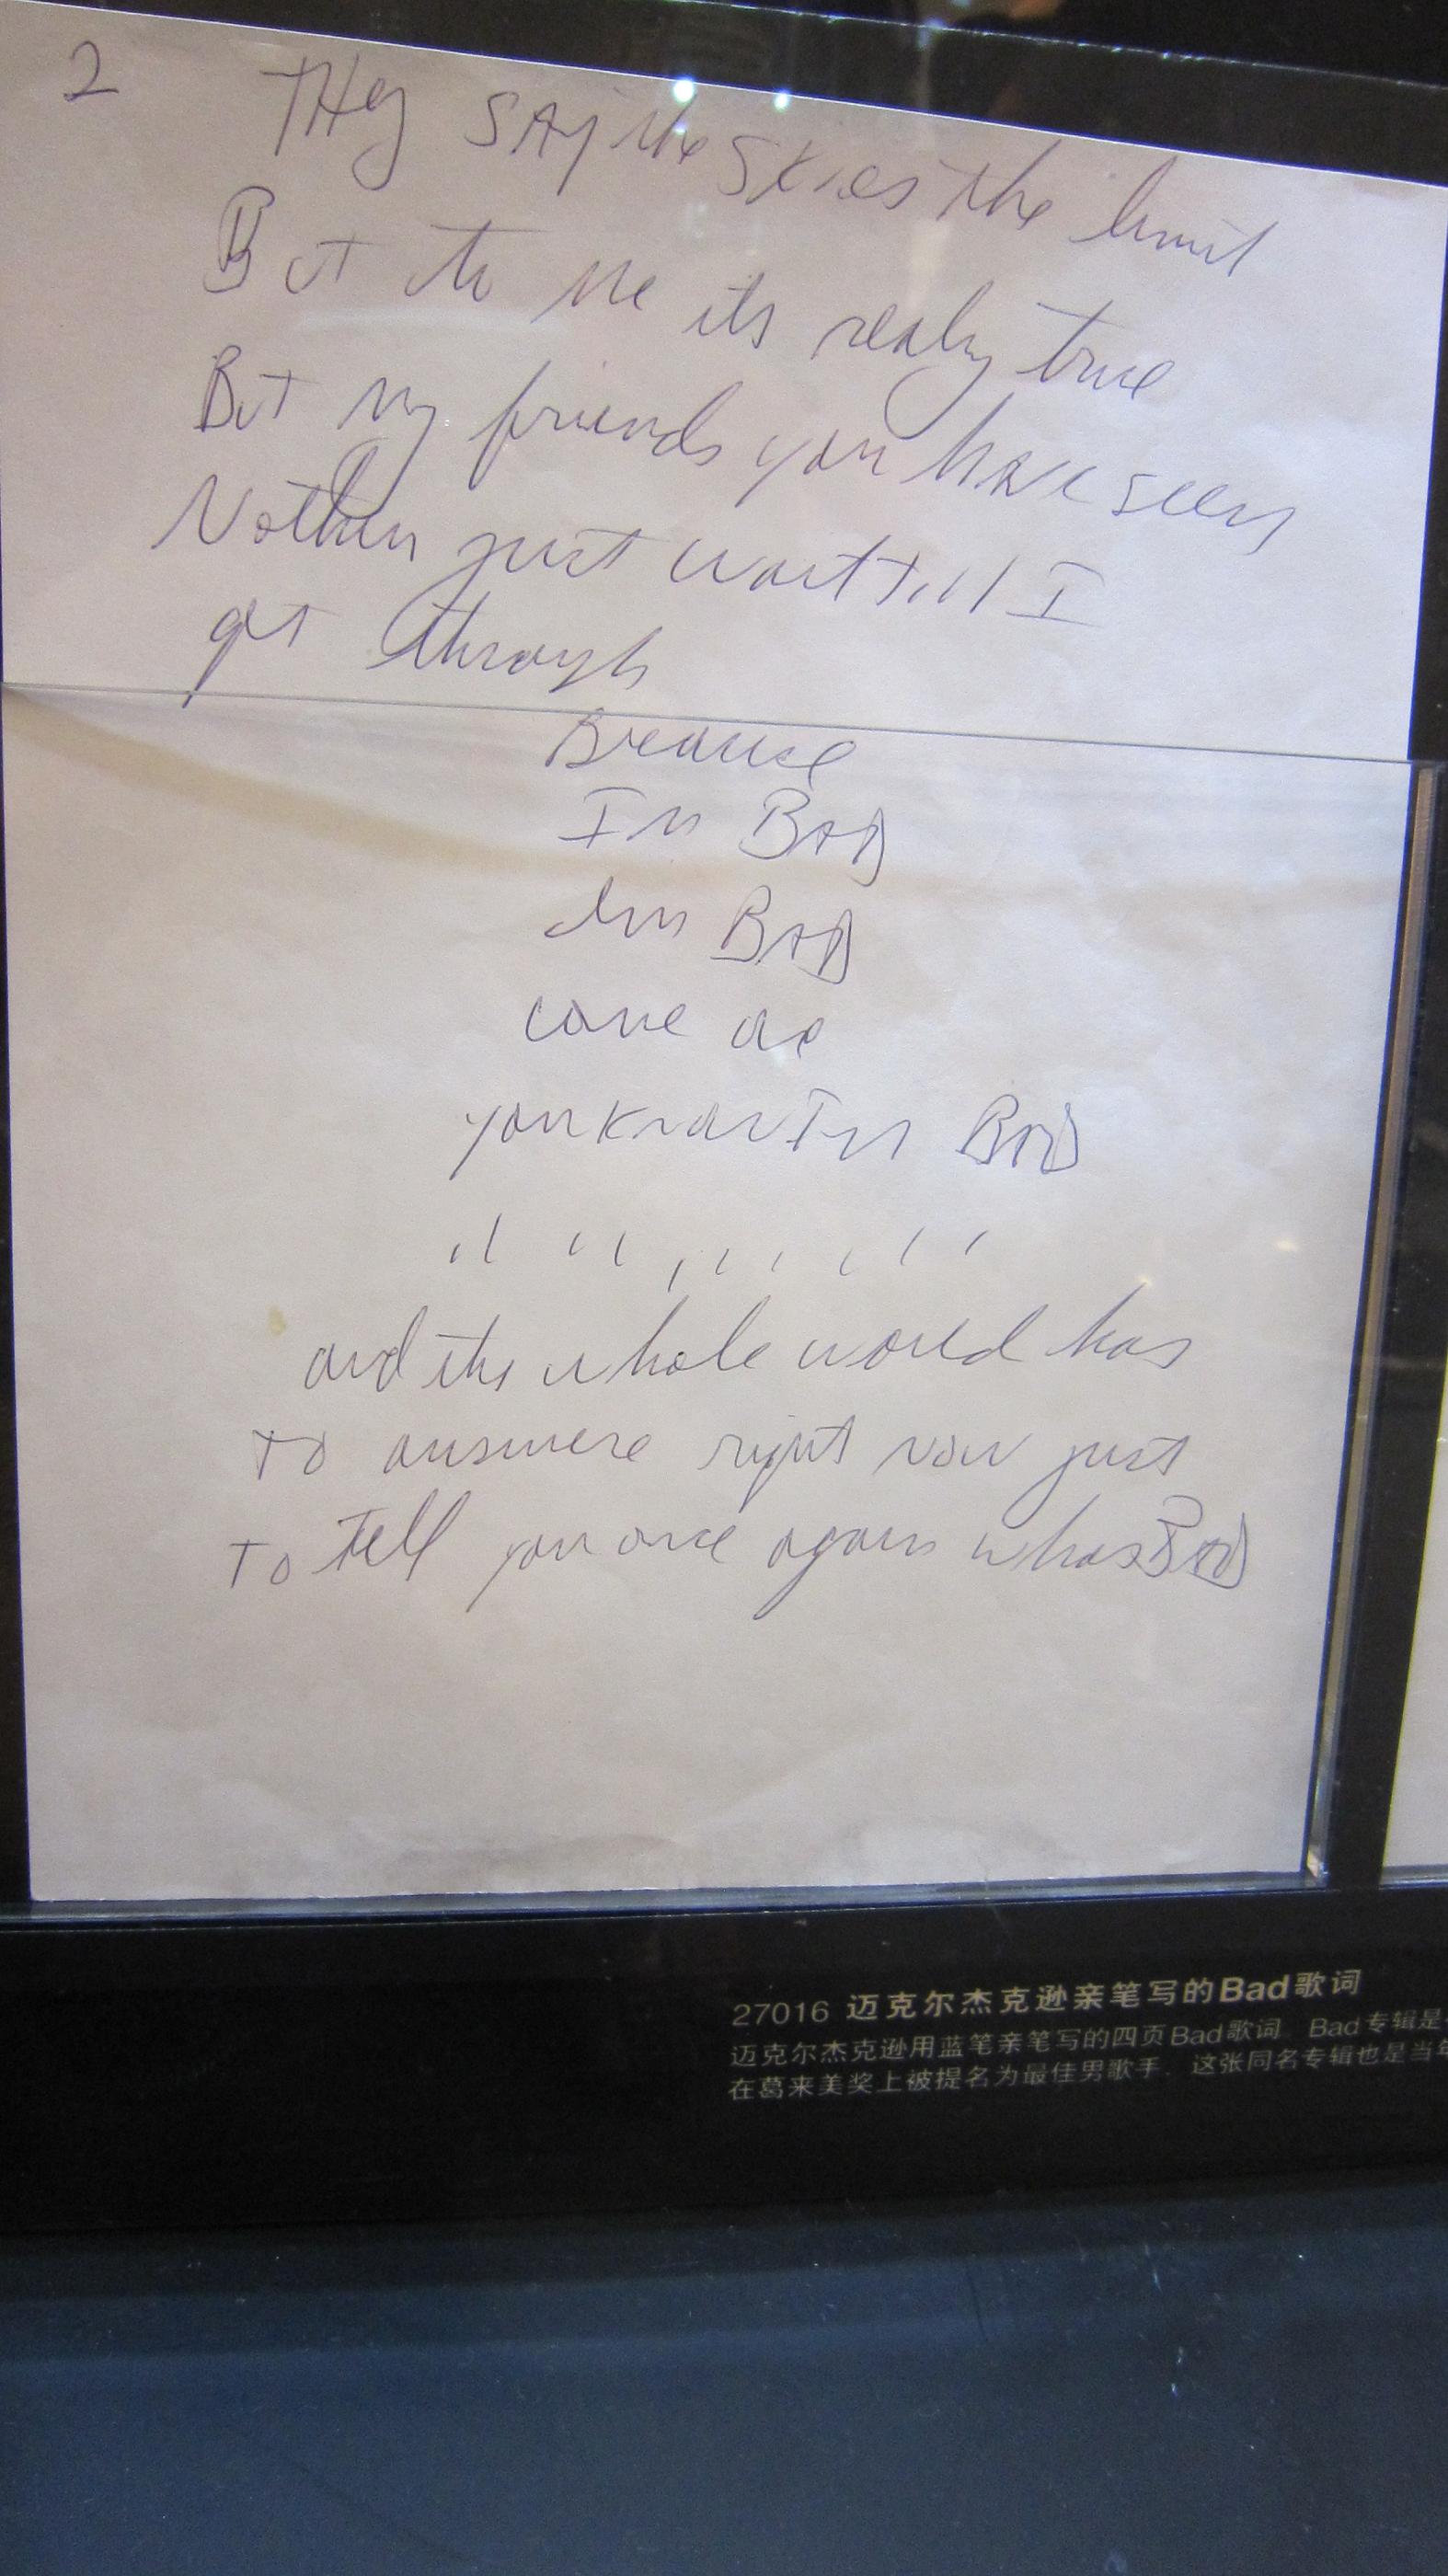 2
THey SAy the skies the limit
But to me its realy true
But my friends you have seen
Nothin just wait till I
get through
Because
Im BAD
Im BAD
come on
you know Im BAD
'' '' '' '' '' ''
and the whole world has
to answere right now just
to tell you once again whos BAD
27016 迈克尔杰克逊亲笔写的Bad歌词
迈克尔杰克逊用蓝笔亲笔写的四页Bad歌词. Bad专辑是
在葛来美奖上被提名为最佳男歌手. 这张同名专辑也是当年